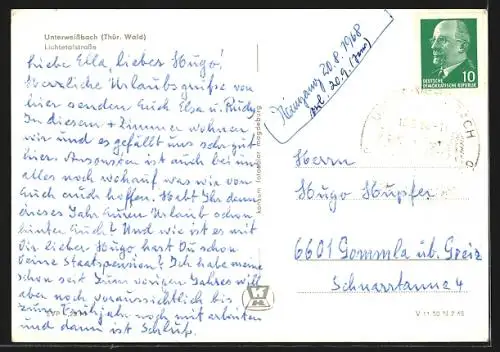 Unterweißbach (Thür. Wald)
Lichtetalstraße
Liebe Ella, lieber Hugo!
Herzliche Urlaubsgrüße von
hier senden Euch Elsa u. Rudi
In diesem + Zimmer wohnen
wir und es gefällt uns sehr gut
hier. Ansonsten ist auch bei uns
alles noch wohlauf was wie von
Euch auch hoffen. Habt Ihr denn
dieses Jahr Euren Urlaub schon
hinter Euch? Und wie ist es mit
Dir lieber Hugo, hast Du schon
Deine Staatspension? Ich habe meine
schon seit vorigen Jahres will
aber noch voraussichtlich bis
zum Frühjahr noch mit arbeiten
und dann ist Schluß.
20.8.1968
20.9.
DEUTSCHE
DEMOKRATISCHE REPUBLIK
10
konsum fotocolor magdeburg
Herrn
Hugo Hupfer
6601 Gommla üb. Greiz
Schnarrtanne 4
V 11 50